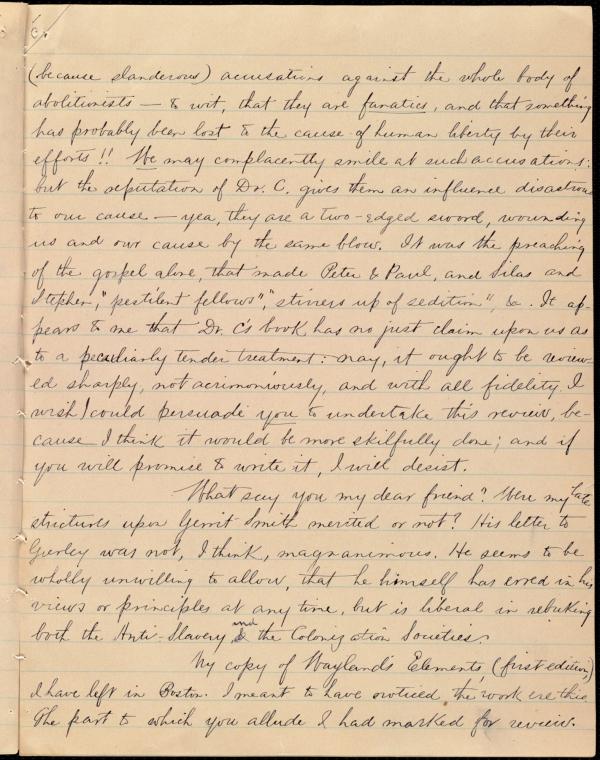 6.
(because slanderous) accusations against the whole body of
abolitionists — to wit, that they are fanatics, and that something
has probably been lost to the cause of human liberty by their
efforts!! We may complacently smile at such accusations:
but the reputation of Dr. C. gives them an influence disastrous
to our cause — yea, they are a two-edged sword, wounding
us and our cause by the same blow. It was the preaching
of the gospel alone, that made Peter & Paul, and Silas and
Stephen, "pestilent fellows", "stirrers up of sedition", &. It ap-
pears to me that Dr. C's book has no just claim upon us as
to a peculiarly tender treatment: nay, it ought to be review-
ed sharply, not acrimoniously, and with all fidelity. I
wish I could persuade you to undertake this review, be-
cause I think it would be more skilfully done; and if
you will promise to write it, I will desist.
What say you my dear friend? Were my late
strictures upon Gerrit Smith merited or not? His letter to
Gurley was not, I think, magnanimous. He seems to be
wholly unwilling to allow, that he himself has erred in his
views or principles at any time, but is liberal in rebuking
both the Anti-Slavery and the Colonization Societies.
My copy of Wayland's Elements, (first edition,)
I have left in Boston. I meant to have noticed the work ere this.
The part to which you allude I had marked for review.